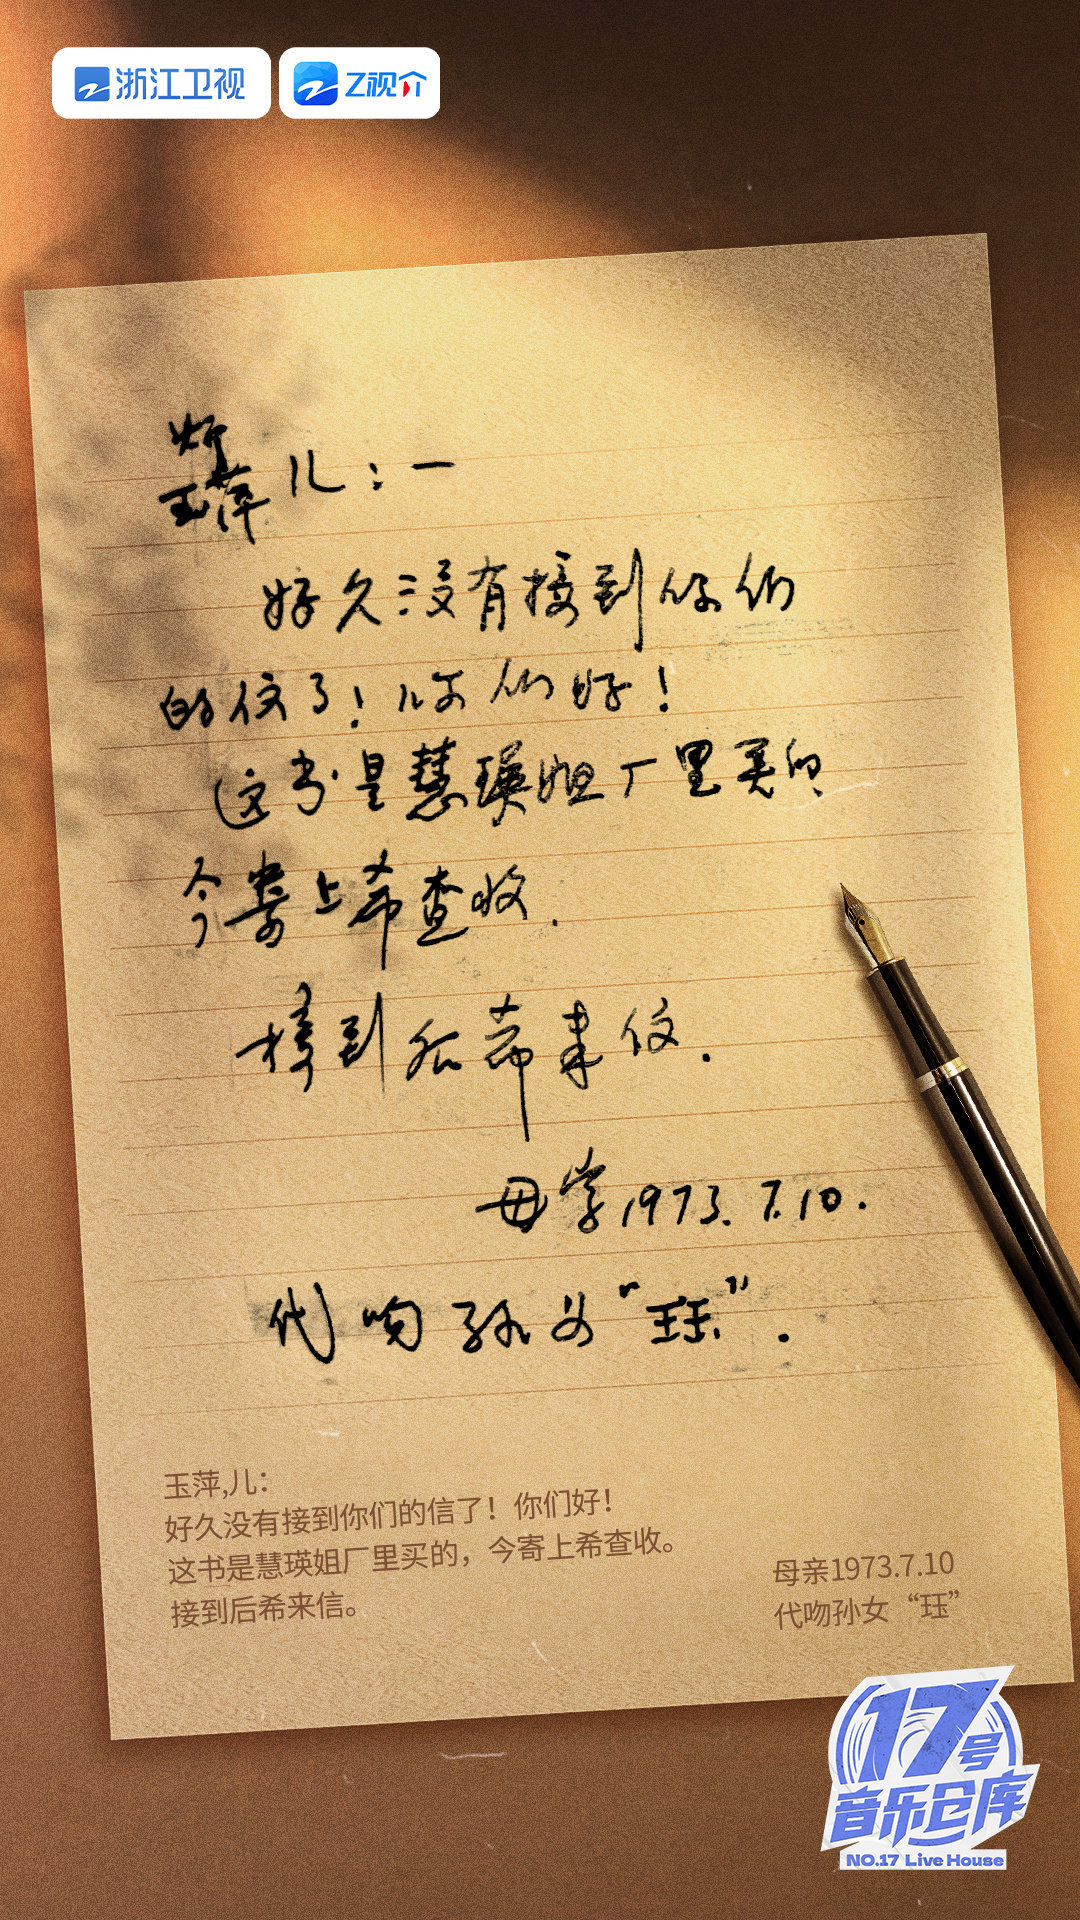 浙江卫视 Z视介
炘
玉萍 儿：一
好久没有接到你们
的信了！你们好！
这书是慧瑛姐厂里买的、
今寄上希查收.
接到后希来信.
母字1973.7.10.
代吻孙女“珏”.
玉萍,儿：
好久没有接到你们的信了！你们好！
这书是慧瑛姐厂里买的，今寄上希查收。
接到后希来信。
母亲1973.7.10
代吻孙女“珏”
17号
音乐仓库
NO.17 Live House